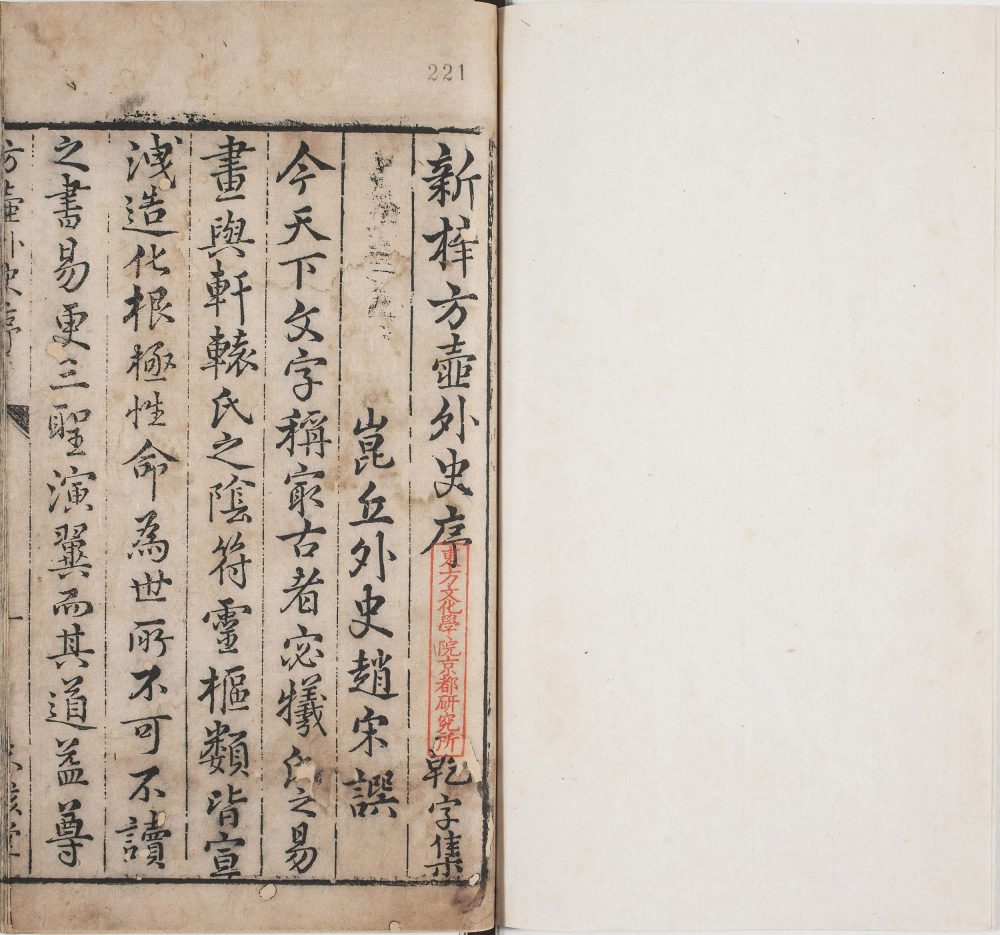 221
新梓方壺外史序 乾字集
東方文化學院京都研究所
崑丘外史趙宋譔
今天下文字稱最古者宓犧氏之易
畫與軒轅氏之陰符靈樞類皆宣
洩造化根極性命為世所不可不讀
之書易更三聖演翼而其道益尊
方壺外史序
一